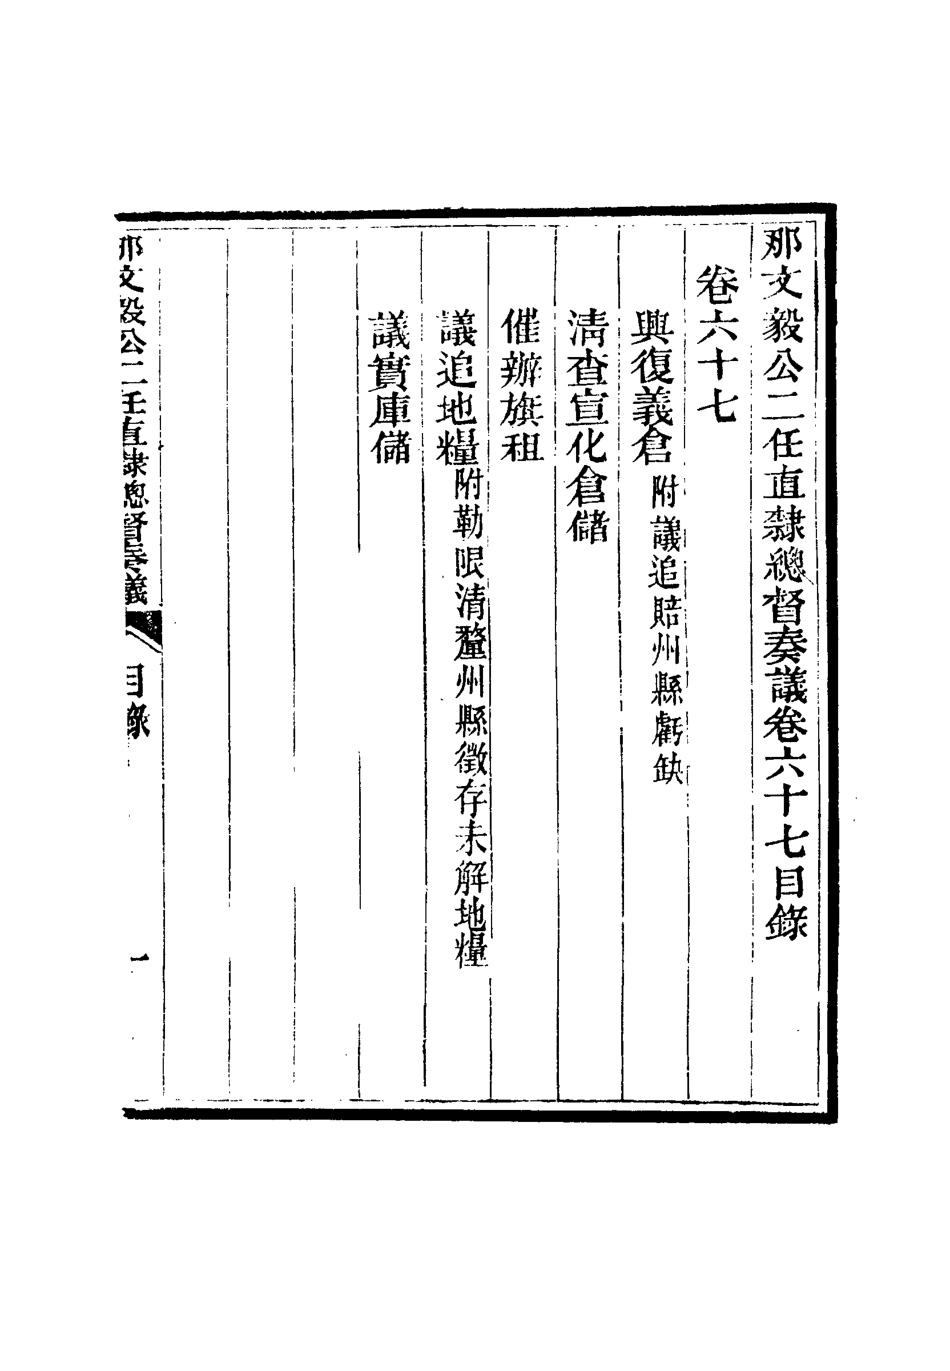 那文毅公二任直隸總督奏議卷六十七目錄
卷六十七
興復義倉附議追賠州縣虧缺
清查宣化倉儲
催辦旗租
議追地糧附勒限清釐州縣徵存未解地糧
議實庫儲
那文毅公二任直隸總督奏議 目錄 一